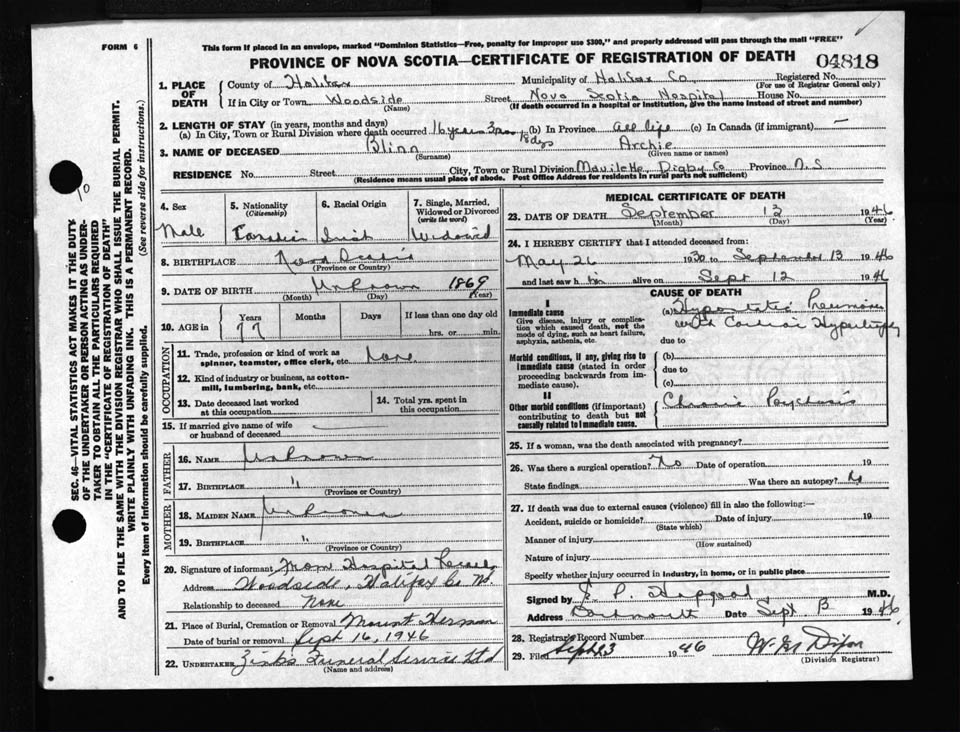 FORM 6
This form if placed in an envelope, marked "Dominion Statistics—Free, penalty for improper use $300," and properly addressed will pass through the mail "FREE"
PROVINCE OF NOVA SCOTIA—CERTIFICATE OF REGISTRATION OF DEATH
04818
1. PLACE OF DEATH
County of Halifax Municipality of Halifax Co. Registered No.
(For use of Registrar General only)
If in City or Town Woodside Street Nova Scotia Hospital House No.
(Name) (If death occurred in a hospital or institution, give the name instead of street and number)
2. LENGTH OF STAY (in years, months and days)
(a) In City, Town or Rural Division where death occurred 16 years 3 mos 18 dys (b) In Province all life (c) In Canada (if immigrant) —
3. NAME OF DECEASED Blinn Archie
(Surname) (Given name or names)
RESIDENCE No. Street City, Town or Rural Division Mavilette, Digby Co Province N.S
(Residence means usual place of abode. Post Office Address for residents in rural parts not sufficient)
4. Sex Male
5. Nationality (Citizenship) Canadian
6. Racial Origin Irish
7. Single, Married, Widowed or Divorced (write the word) Widowed
8. BIRTHPLACE Nova Scotia
(Province or Country)
9. DATE OF BIRTH Unknown 1869
(Month) (Day) (Year)
10. AGE in Years 77 Months Days If less than one day
hrs. or min.
OCCUPATION
11. Trade, profession or kind of work as spinner, teamster, office clerk, etc. None
12. Kind of industry or business, as cotton-mill, lumbering, bank, etc.
13. Date deceased last worked at this occupation
14. Total yrs. spent in this occupation
15. If married give name of wife or husband of deceased
FATHER
16. NAME Unknown
17. BIRTHPLACE "
(Province or Country)
MOTHER
18. MAIDEN NAME Unknown
19. BIRTHPLACE "
(Province or Country)
20. Signature of informant From Hospital Records
Address Woodside, Halifax Co N.
Relationship to deceased None
21. Place of Burial, Cremation or Removal Mount Hermon
Date of burial or removal Sept 16, 1946
22. UNDERTAKER Zink's Funeral Service Ltd
(Name and address)
MEDICAL CERTIFICATE OF DEATH
23. DATE OF DEATH September 13 1946
(Month) (Day) (Year)
24. I HEREBY CERTIFY that I attended deceased from:
May 26 1930 to September 13 1946
and last saw him alive on Sept 12 1946
CAUSE OF DEATH
I
Immediate cause
Give disease, injury or complication which caused death, not the mode of dying, such as heart failure, asphyxia, asthenia, etc.
(a) Hypostatic Pneumonia
with Cardiac Hypertrophy
due to
Morbid conditions, if any, giving rise to immediate cause (stated in order proceeding backwards from immediate cause).
(b)
due to
(c)
II
Other morbid conditions (if important) contributing to death but not causally related to immediate cause.
Chronic Psychosis
25. If a woman, was the death associated with pregnancy?
26. Was there a surgical operation? No Date of operation 19
State findings Was there an autopsy? No
27. If death was due to external causes (violence) fill in also the following:—
Accident, suicide or homicide? Date of injury 19
(State which)
Manner of injury
(How sustained)
Nature of injury
Specify whether injury occurred in industry, in home, or in public place
Signed by M.D.
Address Dartmouth Date Sept 13 1946
28. Registrar's Record Number
29. Filed Sept 23 1946
(Division Registrar)
SEC. 46—VITAL STATISTICS ACT MAKES IT THE DUTY
OF THE UNDERTAKER OR PERSON ACTING AS UNDERTAKER
TO OBTAIN ALL THE PARTICULARS REQUIRED
IN THE "CERTIFICATE OF REGISTRATION OF DEATH"
AND TO FILE THE SAME WITH THE DIVISION REGISTRAR WHO SHALL ISSUE THE BURIAL PERMIT.
WRITE PLAINLY WITH UNFADING INK. THIS IS A PERMANENT RECORD.
Every item of information should be carefully supplied. (See reverse side for instructions.)